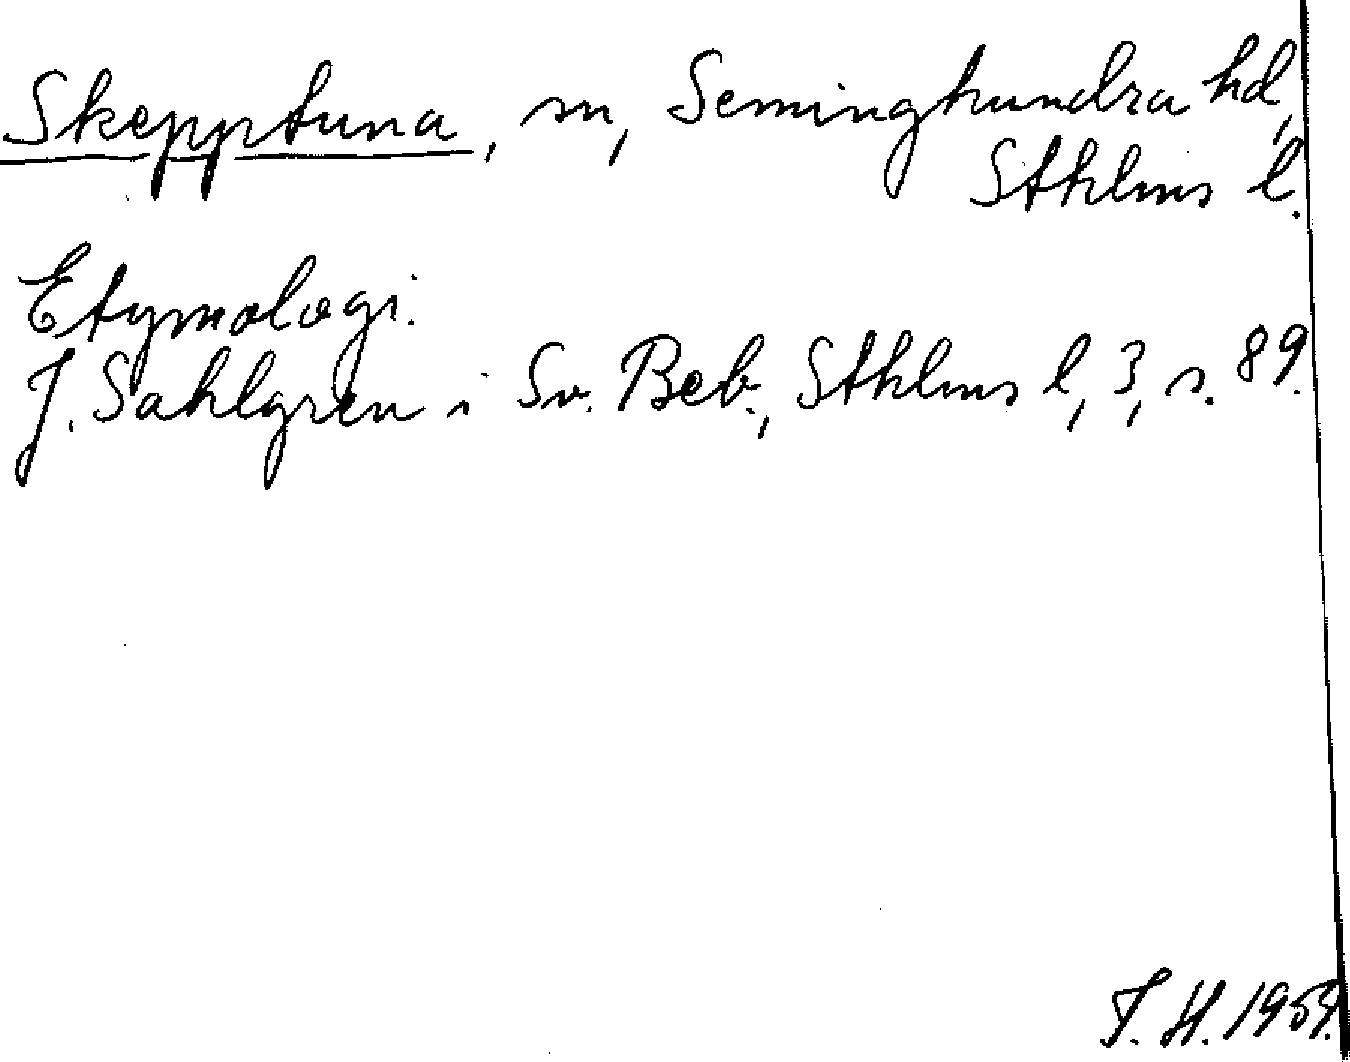 Skepptuna, sn, Seminghundra hd,
Sthlms l.
Etymologi.
J. Sahlgren i Sv. Beb., Sthlms l, 3, s. 89.
T. H. 1959.